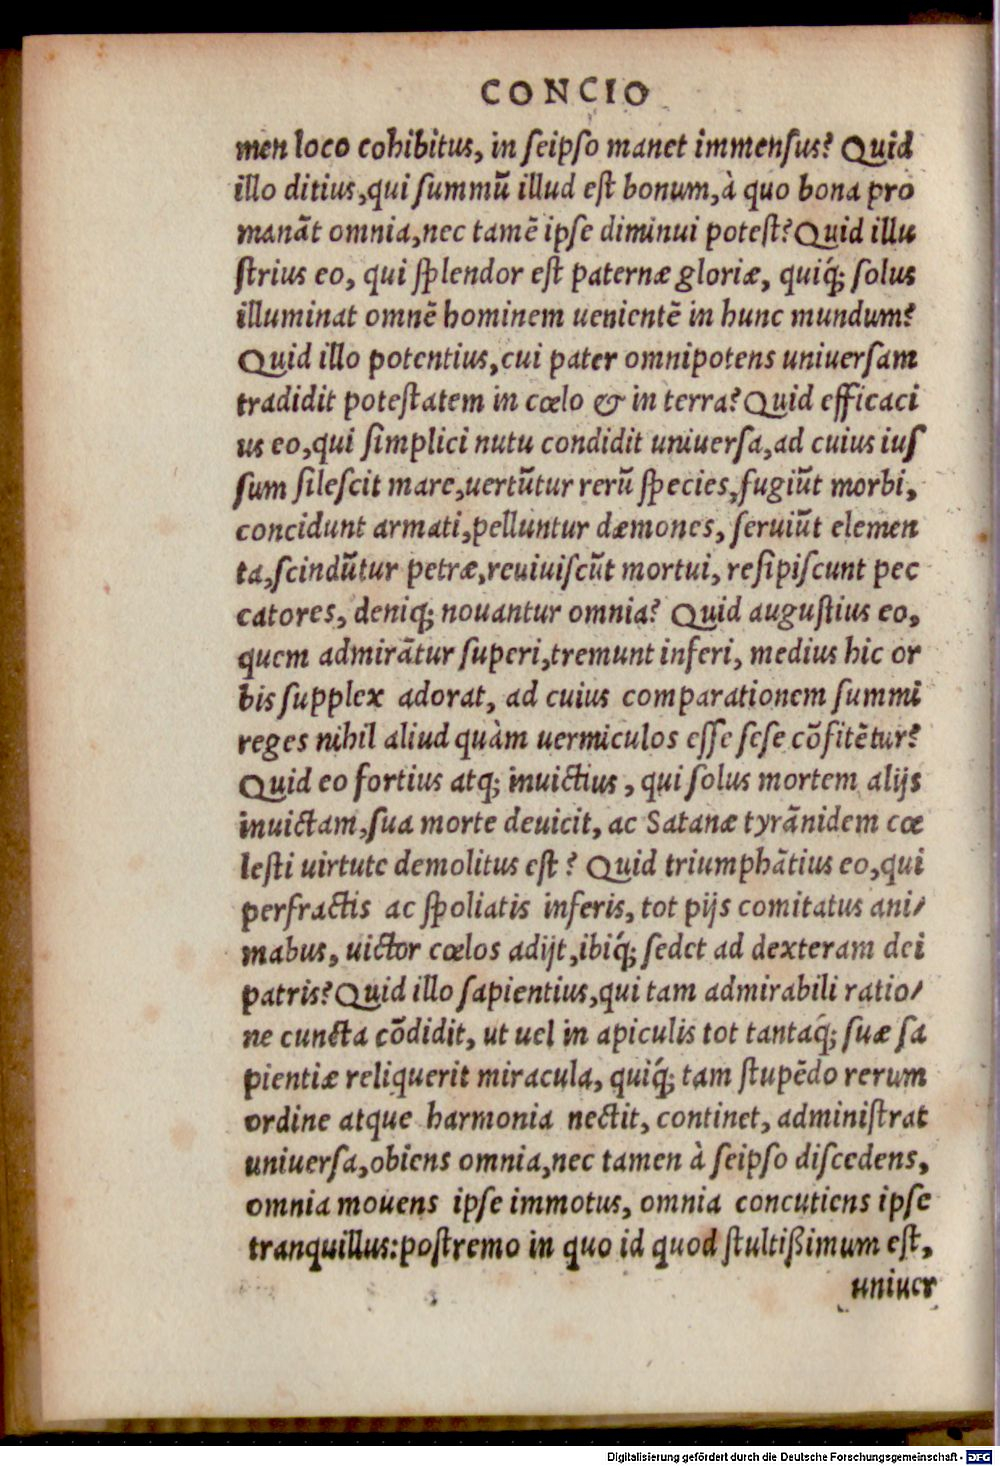 CONCIO
men loco cohibitus, in seipso manet immensus? Quid
illo ditius,qui summū illud est bonum,à quo bona pro
manāt omnia,nec tamē ipse diminui potest?Quid illu
strius eo, qui splendor est paternæ gloriæ, quiq́; solus
illuminat omnē hominem uenientē in hunc mundum?
Quid illo potentius,cui pater omnipotens uniuersam
tradidit potestatem in cœlo & in terra?Quid efficaci
us eo,qui simplici nutu condidit uniuersa,ad cuius ius
sum silescit mare,uertūtur rerū species,fugiūt morbi,
concidunt armati,pelluntur dæmones, seruiūt elemen
ta,scindūtur petræ,reuiuiscūt mortui, resipiscunt pec
catores, deniq; nouantur omnia? Quid augustius eo,
quem admirātur superi,tremunt inferi, medius hic or
bis supplex adorat, ad cuius comparationem summi
reges nihil aliud quàm uermiculos esse sese cōfitētur?
Quid eo fortius atq; inuictius, qui solus mortem alijs
inuictam,sua morte deuicit, ac Satanæ tyrānidem cœ
lesti uirtute demolitus est? Quid triumphātius eo,qui
perfractis ac spoliatis inferis, tot pijs comitatus ani/
mabus, uictor cœlos adijt,ibiq́; sedet ad dexteram dei
patris?Quid illo sapientius,qui tam admirabili ratio/
ne cuncta cōdidit, ut uel in apiculis tot tantaq́; suæ sa
pientiæ reliquerit miracula, quiq́; tam stupēdo rerum
ordine atque harmonia nectit, continet, administrat
uniuersa,obiens omnia,nec tamen à seipso discedens,
omnia mouens ipse immotus, omnia concutiens ipse
tranquillus:postremo in quo id quod stultißimum est,
uniuer
Digitalisierung gefördert durch die Deutsche Forschungsgemeinschaft - DFG